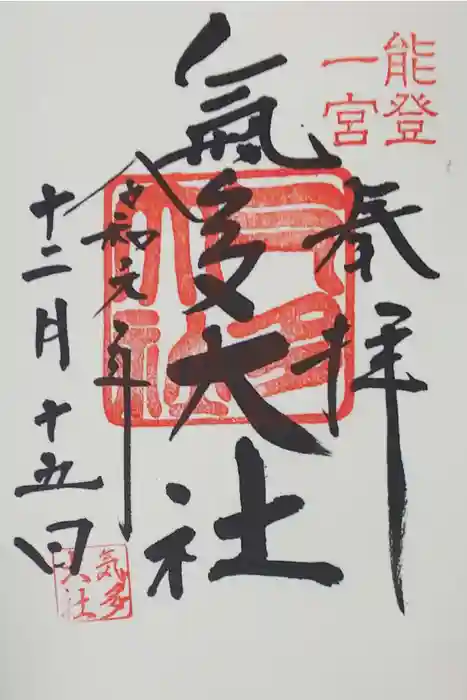 能登
一宮
奉拝
氣多大社
令和元年
十二月十五日
気多
大社